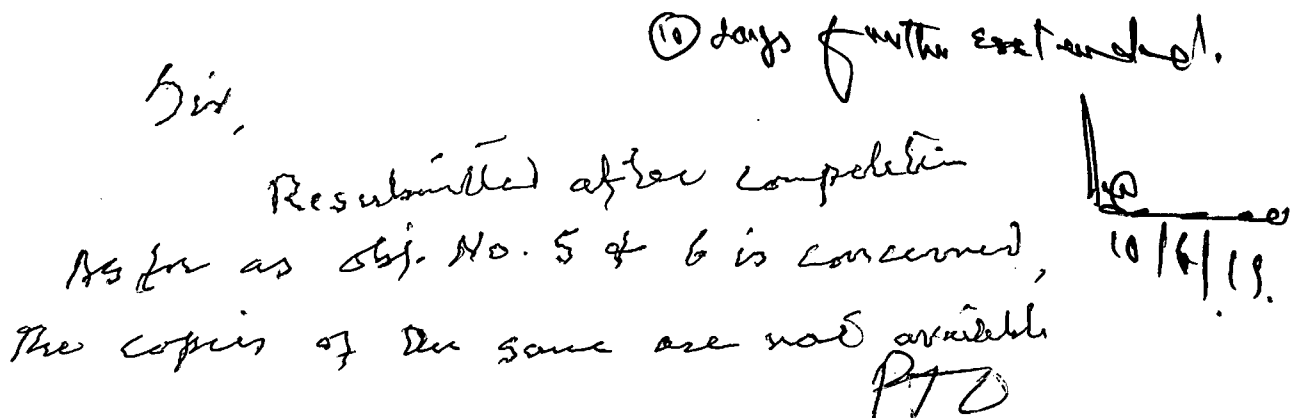 (10) days further extended.
Sir,
Resubmitted after completion
As far as obj. No. 5 & 6 is concerned,
10/6/19.
The copies of the same are not available
PTO